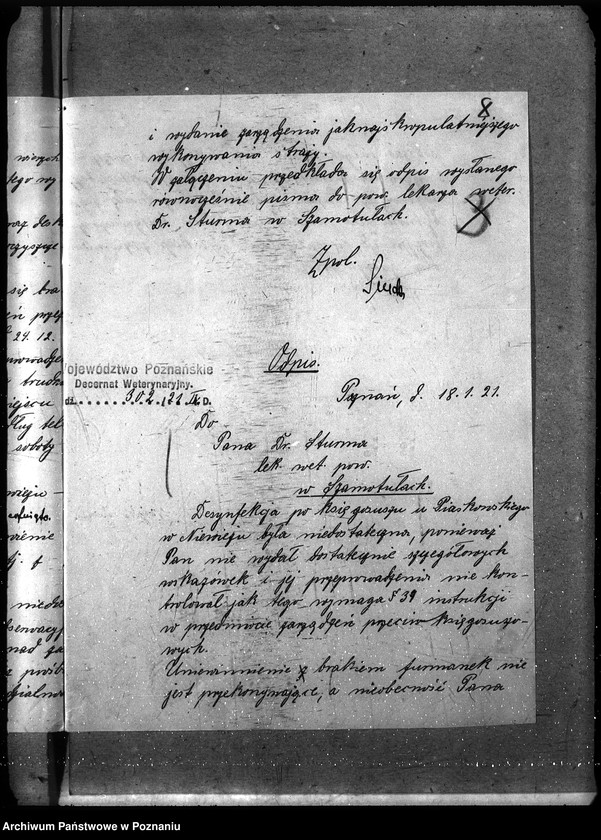 8
i wydanie zarządzenia jaknajskrupulatniejszego
wykonywania straży.
W załączeniu przedkłada się odpis wysłanego
równocześnie pisma do pow. lekarza weter.
Dr. Sturma w Szamotułach.
3
Zpol.
Odpis.
Województwo Poznańskie
Decernat Weterynaryjny.
302/21 IV. D.
Poznań, d. 18.1.21.
Do
Pana Dr. Sturma
lek. wet. pow.
w Szamotułach.
Desynfekcja po księgosuszu u Piaskowskiego
w Niemieju była niedostateczna, ponieważ
Pan nie wydał dostatecznie szczegółowych
wskazówek i jej przeprowadzenia nie kon-
trolował jak tego wymaga § 39 instrukcji
w przedmiocie zarządzeń przeciw księgosuszo-
wych.
Uniewinnienie z brakiem furmanek nie
jest przekonywające, a nieobecność Pana
24.12.
soboty
Archiwum Państwowe w Poznaniu